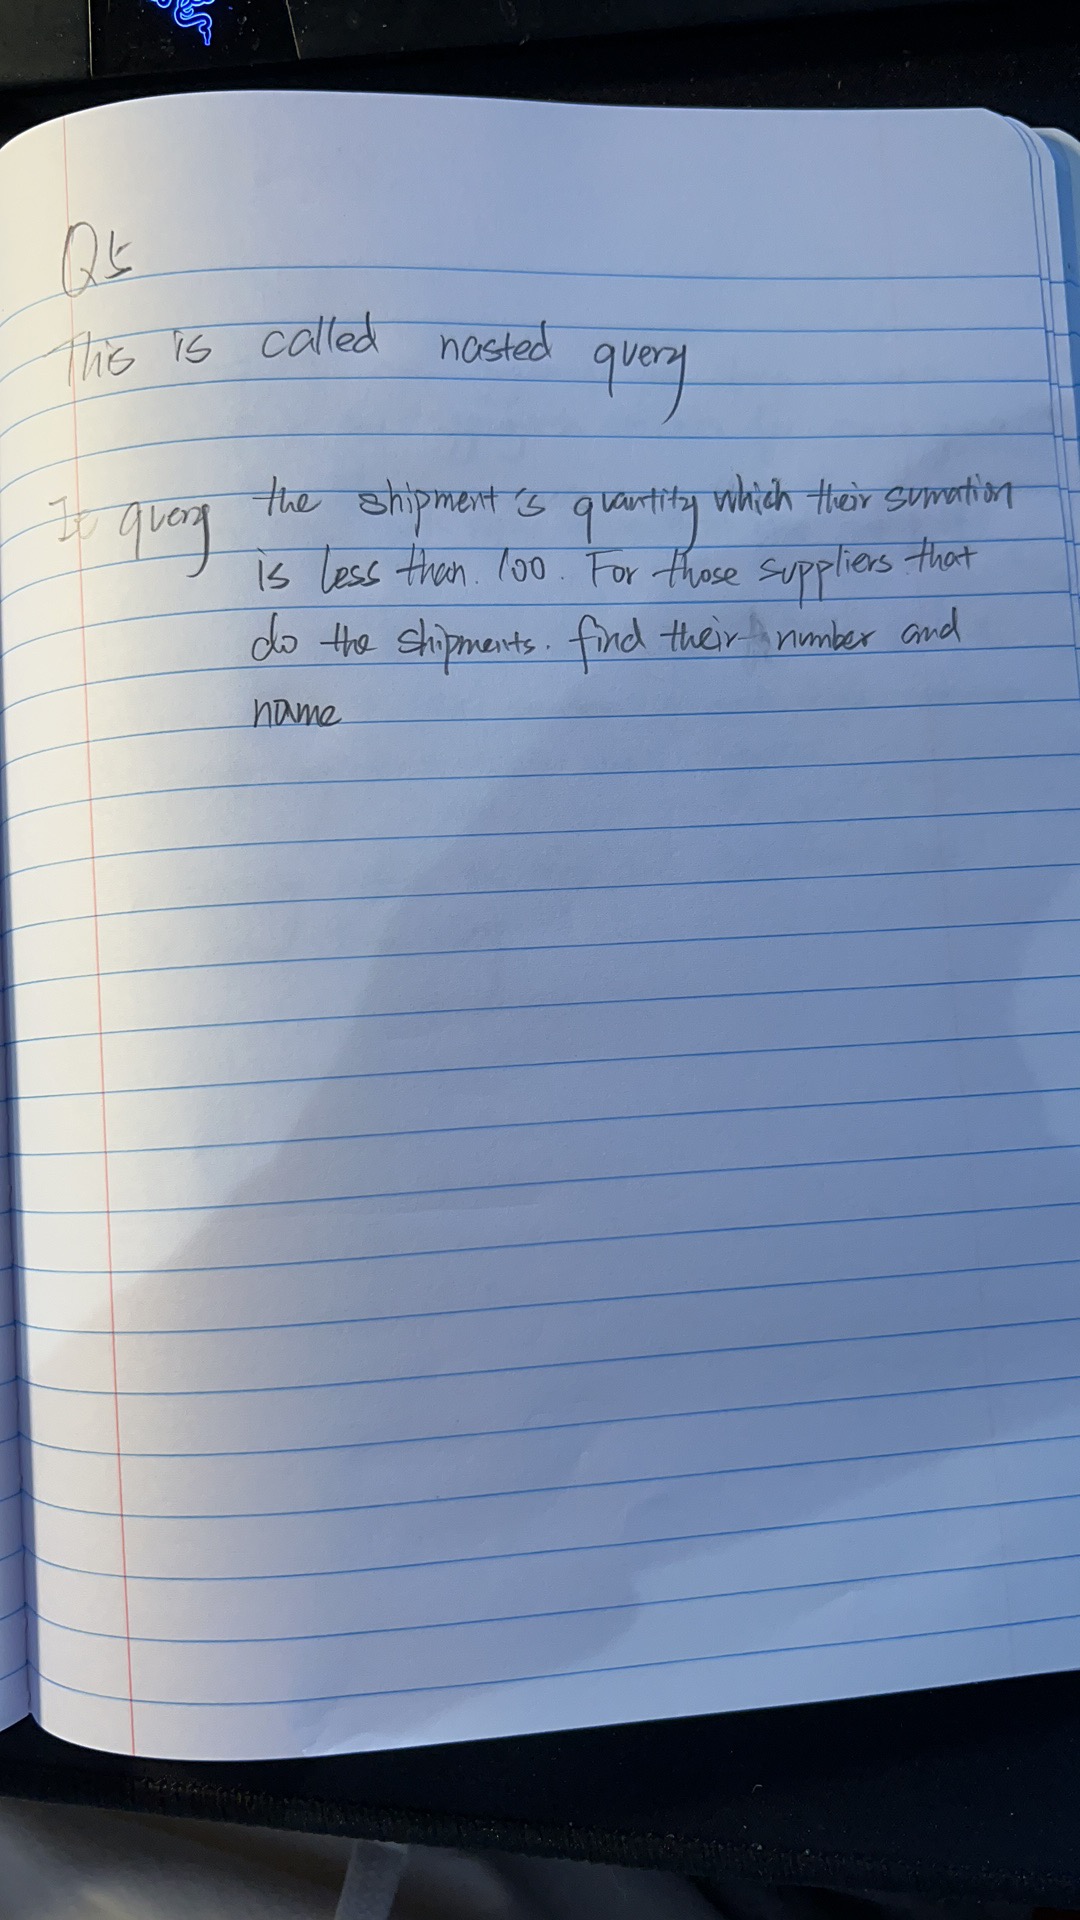 Q5
This is called nasted query
It query the shipment's quantity which their sumation
is less than 100. For those suppliers that
do the shipments. find their number and
name